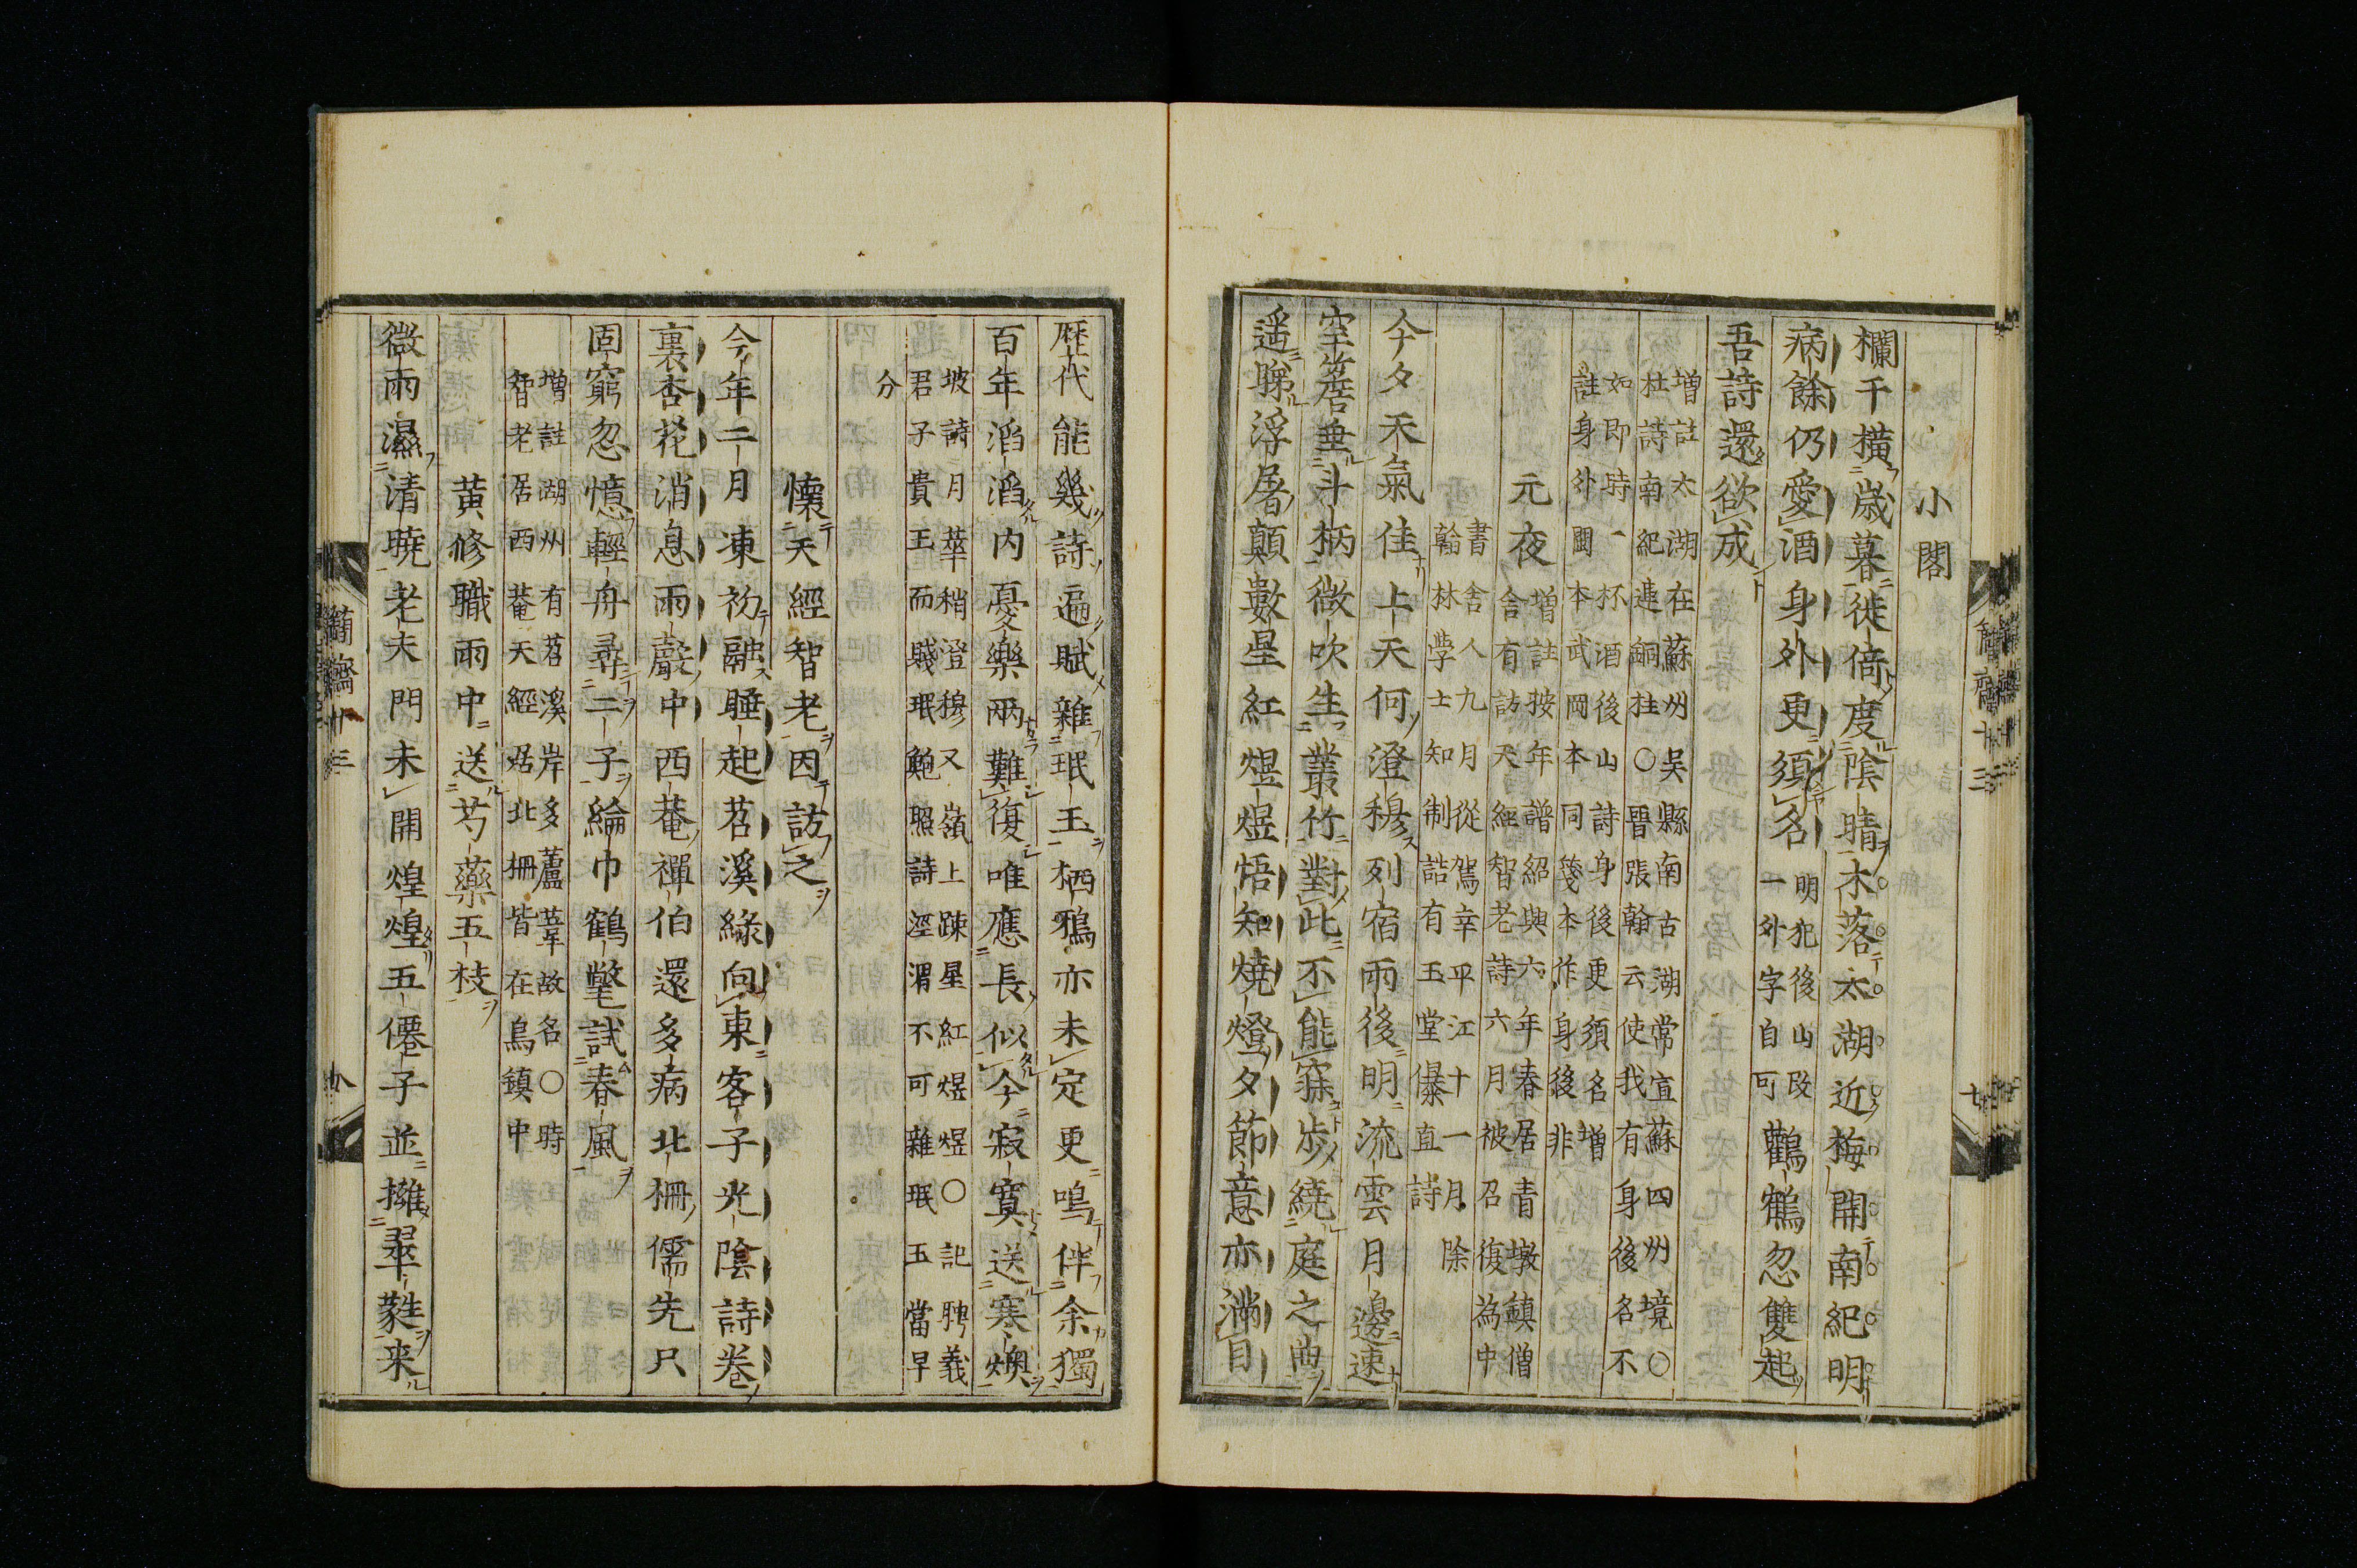 小閣
欄干横歳暮徙倚度陰晴木落太湖近梅開南紀明
病餘仍愛酒身外更須名
明犯後山改
一外字自可
鸛鶴忽雙起
吾詩還欲成
増註太湖在蘇州吳縣南古湖常宣蘇四州境〇
杜詩南紀連銅柱〇晋張翰云使我有身後名不
如即時一杯酒後山詩身後更須名増
註身外閩本武岡本同箋本作身後非
元夜
増註按年譜紹興六年春居青墩鎮僧
舎有訪天經智老詩六月被召復為中
書舎人九月從駕幸平江十一月除
翰林學士知制誥有玉堂儤直詩
今夕天氣佳上天何澄穆列宿雨後明流雲月邊速
空簷垂斗柄微吹生叢竹對此不能寐歩繞庭之曲
遥睇浮屠顛數星紅煜煜悟知燒燈夕節意亦満目
歴代能幾詩遍賦雜珉玉栖鴉亦未定更鳴伴余獨
百年滔滔内憂樂兩難復唯應長似今寂寞送寒燠
坡詩月華稍澄穆又嶺上疎星紅煜煜〇記聘義
君子貴玉而賤珉鮑照詩涇渭不可雜珉玉當早
分
懐天經智老因訪之
今年二月凍初融睡起苕溪綠向東客子光陰詩巻
裏杏花消息雨聲中西菴禪伯還多病北柵儒先只
固窮忽憶輕舟尋二子綸巾鶴氅試春風
増註湖州有苕溪岸多蘆葦故名〇時
智老居西菴天經居北柵皆在烏鎮中
黄修職雨中送芍藥五枝
微雨濕清曉老夫門未開煌煌五僊子並擁翠蕤来
簡齋十三
七
簡齋十三
八